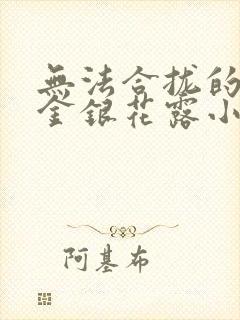 無法合拢的
金银花露小
阿基布